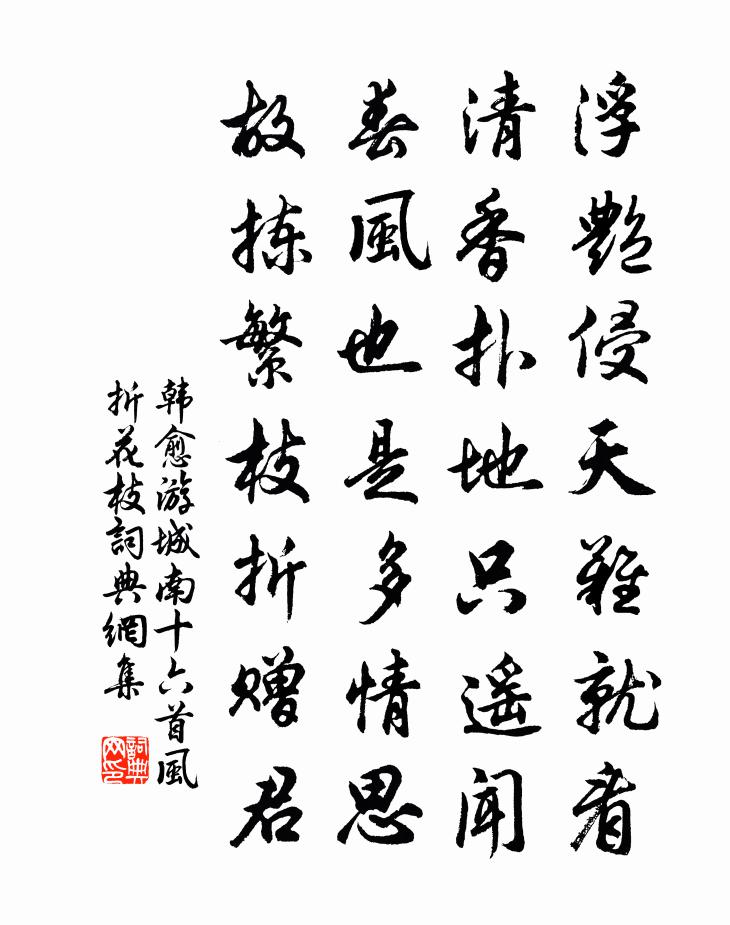 浮艷侵天難就看
清香扑地只遥闻
春風也是多情思
故拣繁枝折赠君
韩愈游城南十六首風
折花枝詞典網集
詞典网印